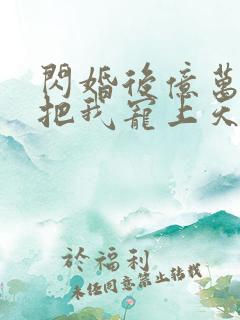 閃婚後億萬
把我寵上天
於福利
未经同意禁止转载